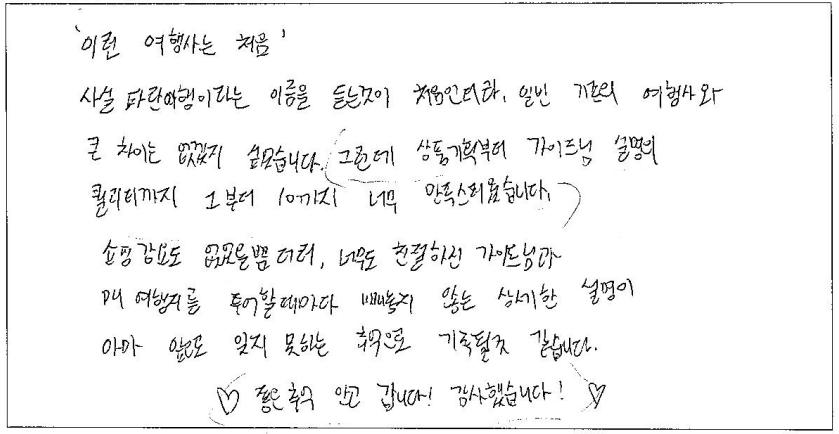 '이런 여행사는 처음'
사실 파란여행이라는 이름을 듣는것이 처음인터라, 일반 기존의 여행사와
큰 차이는 없겠지 싶었습니다. 그런데 상품기획부터 가이드님 설명의
퀄리티까지 1부터 10까지 너무 만족스러웠습니다.
쇼핑강요도 없었을뿐더러, 너무도 친절하신 가이드님과
매 여행지를 투어할때마다 빼놓지 않는 상세한 설명이
아마 앞으로 잊지 못하는 추억으로 기록될것 같습니다.
♡ 좋은추억 안고 갑니다! 감사했습니다! ♡